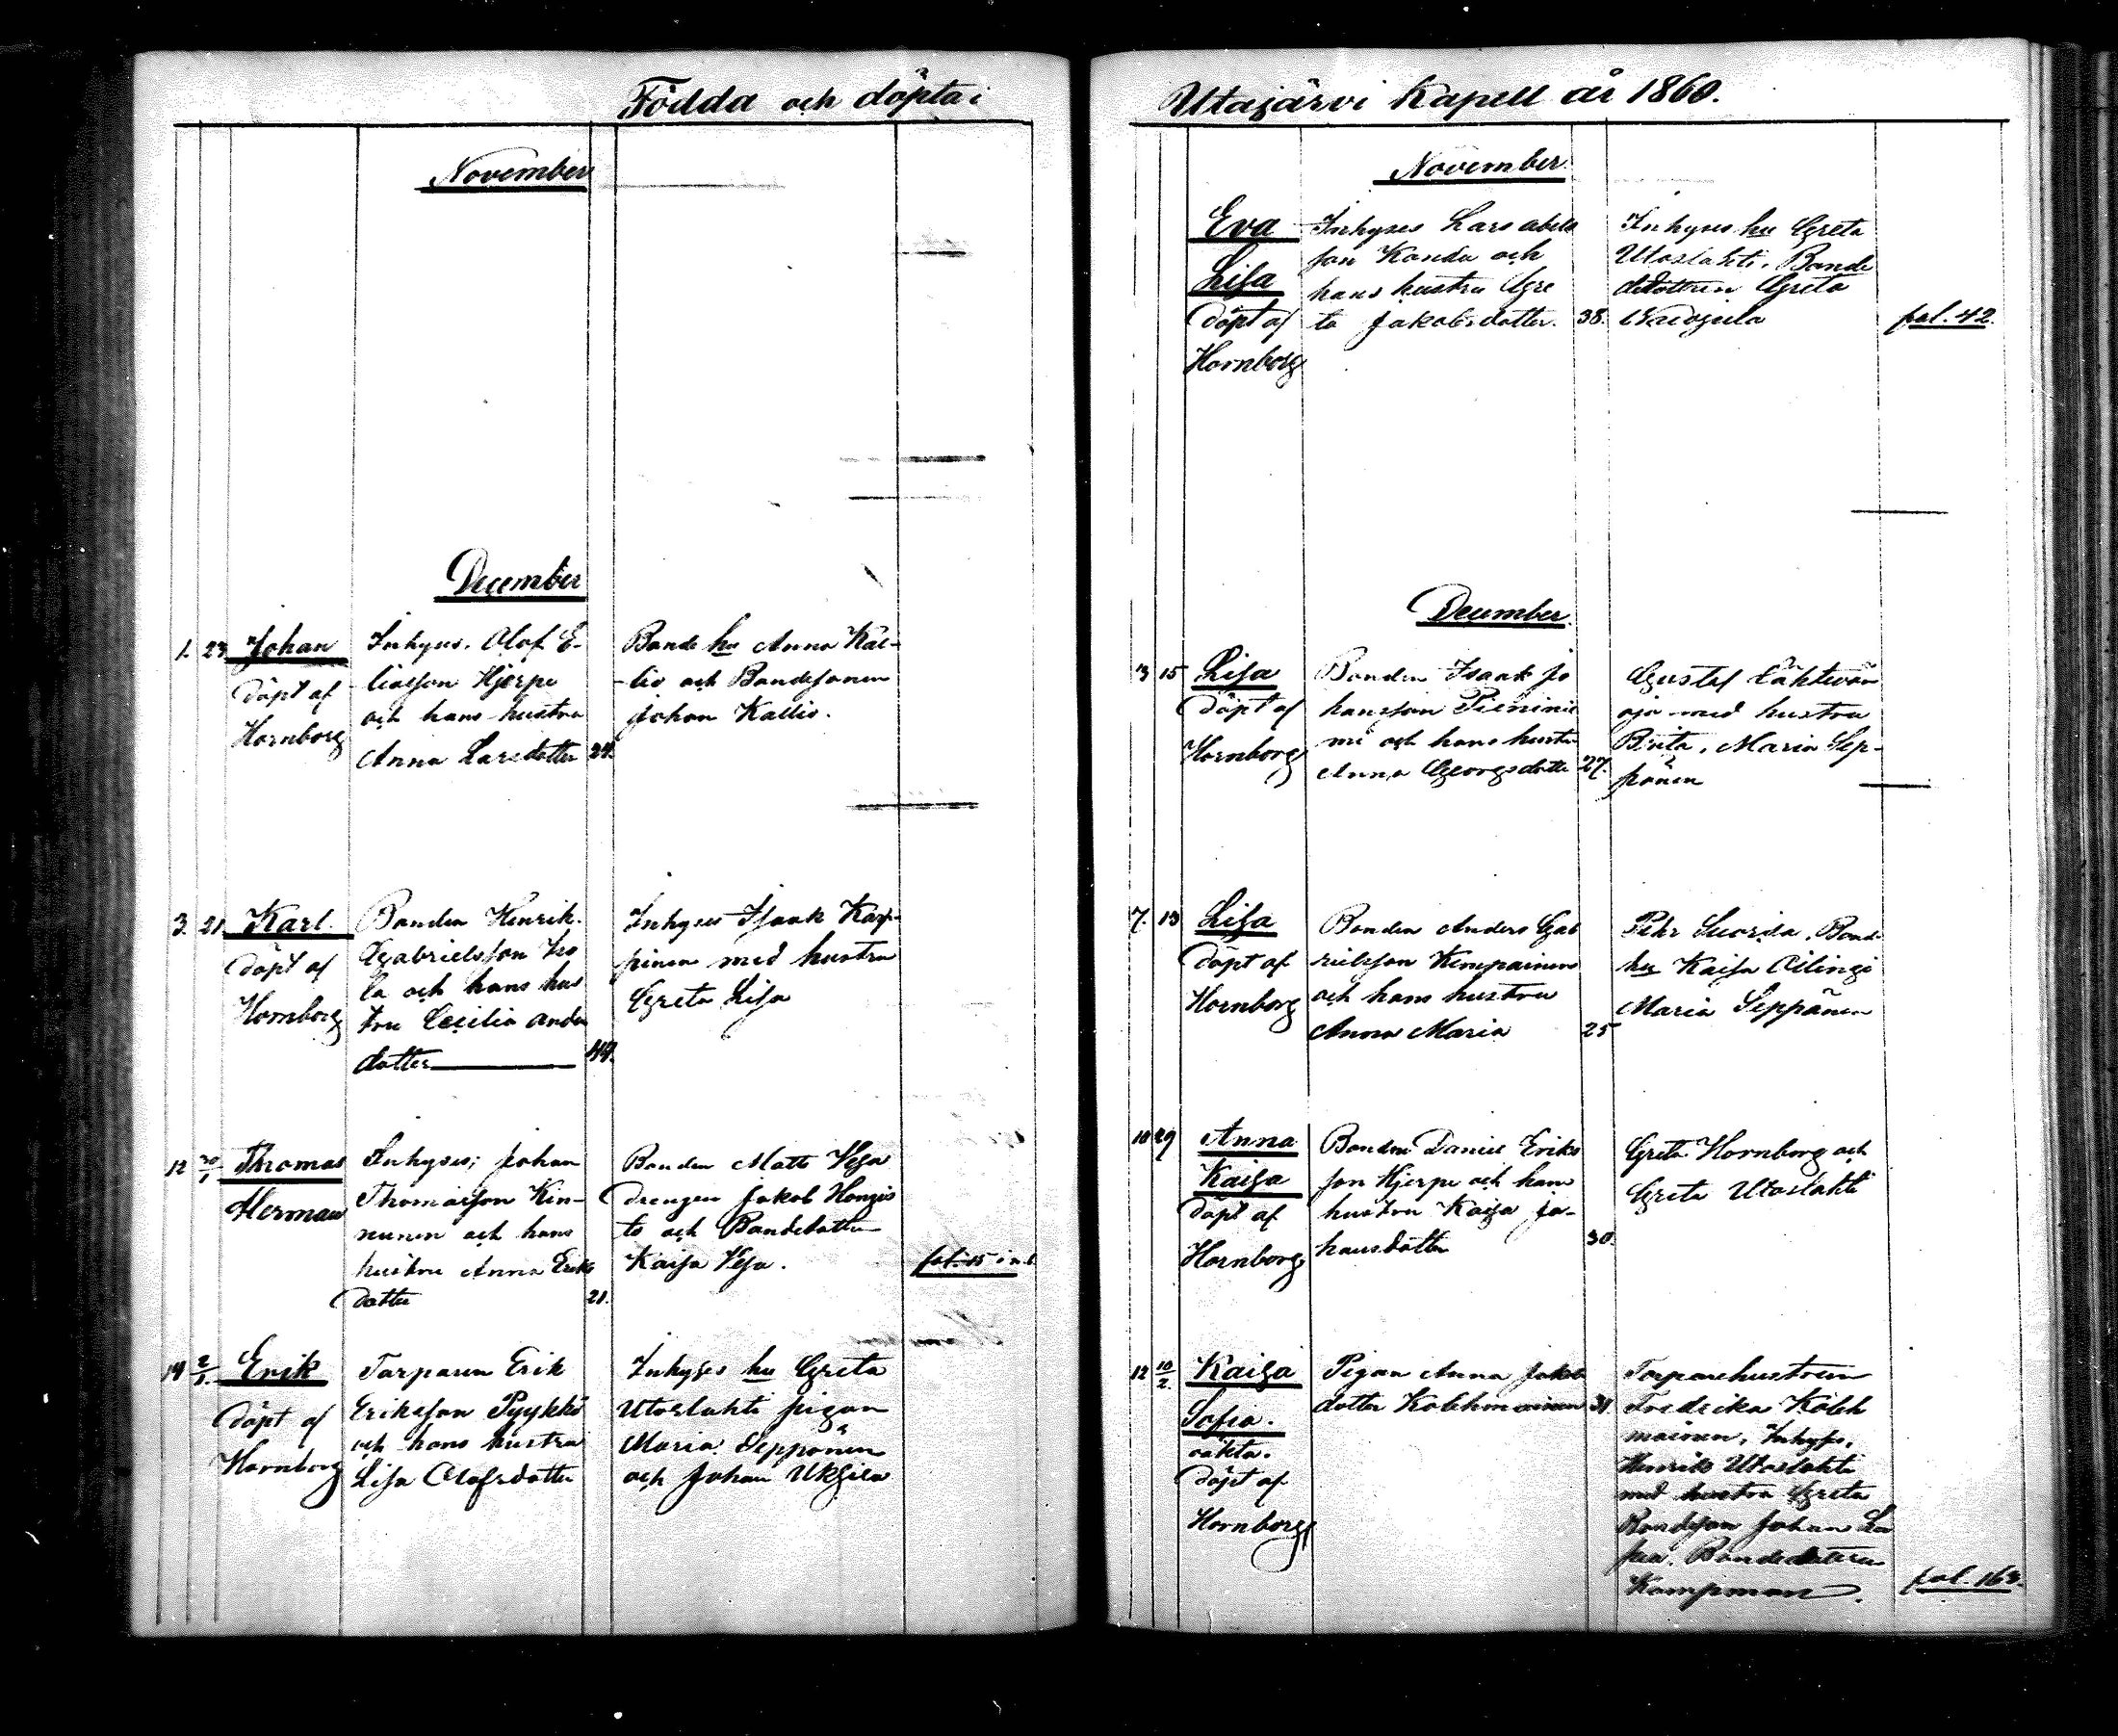 Födda och döpta i
November
December
1. 23. Johan
döpt af
Hornborg
Inhyses. Olof E-
liasson Hjerpe
och hans hustru
Anna Larsdotter 24.
Bonde hu Anna Kal-
-lio och Bondesonen
Johan Kallio.
3. 21. Karl.
döpt af
Hornborg
Bonden Henrik
Gabrielsson Iso
la och hans hus
tru Cecilia Anders
dotter 44.
Inhyses Isaak Karp-
pinen med hustru
Greta Lisa
12 30/1 Thomas
Herman
Inhyses; Johan
Thomasson Kin-
nunen och hans
hustru Anna Eriks
dotter 21.
Bonden Matts Vesa
drengen Jakob Hongis
to och Bondedotter
Kaisa Vesa.
fol. 15 i n.b.
14 2/1. Erik
döpt af
Hornborg
Torparen Erik
Eriksson Pyykkö
och hans hustru
Lisa Olofsdotter
Inhyses hu Greta
Utoslahti pigan
Maria Seppänen
och Johan Ukgila
Utajärvi Kapell år 1860.
November
Eva
Lisa
döpt af
Hornborg
Inhyses Lars Abels
son Kanda och
hans hustru Gre
ta Jakobsdotter. 38.
Inhyses hu Greta
Utoslahti, Bonde
dottren Greta
fol. 42.
December.
3 15 Lisa
döpt af
Hornborg
Bonden Isaak Jo
hansson Pieninie
mi och hans hustru
Anna Georgsdotter 27.
Gustaf Lähtevän
oja med hustru
Brita, Maria Sep-
pänen
7. 13 Lisa
döpt af
Hornborg
Bonden Anders Gab
rielsson Kempainen
och hans hustru
Anna Maria 25
Pehr Suorsa, Bond-
hu Kaisa Ollingi
Maria Seppänen
10 29 Anna
Kaisa
döpt af
Hornborg
Bonden Daniel Eriks
son Hjerpe och hans
hustru Kaisa Jo-
hansdotter 30.
Greta Hornborg och
Greta Utoslahti
12 10/2. Kaisa
Sofia.
oäkta.
döpt af
Hornborg
Pigan Anna Jakobs
dotter Kolehmainen 31.
Torparehustrun
Fredrika Koleh
mainen, Inhyses.
Henrik Utoslahti
med hustru Greta
Bondeson Johan
Bondedottren
Kampman.
fol. 163.